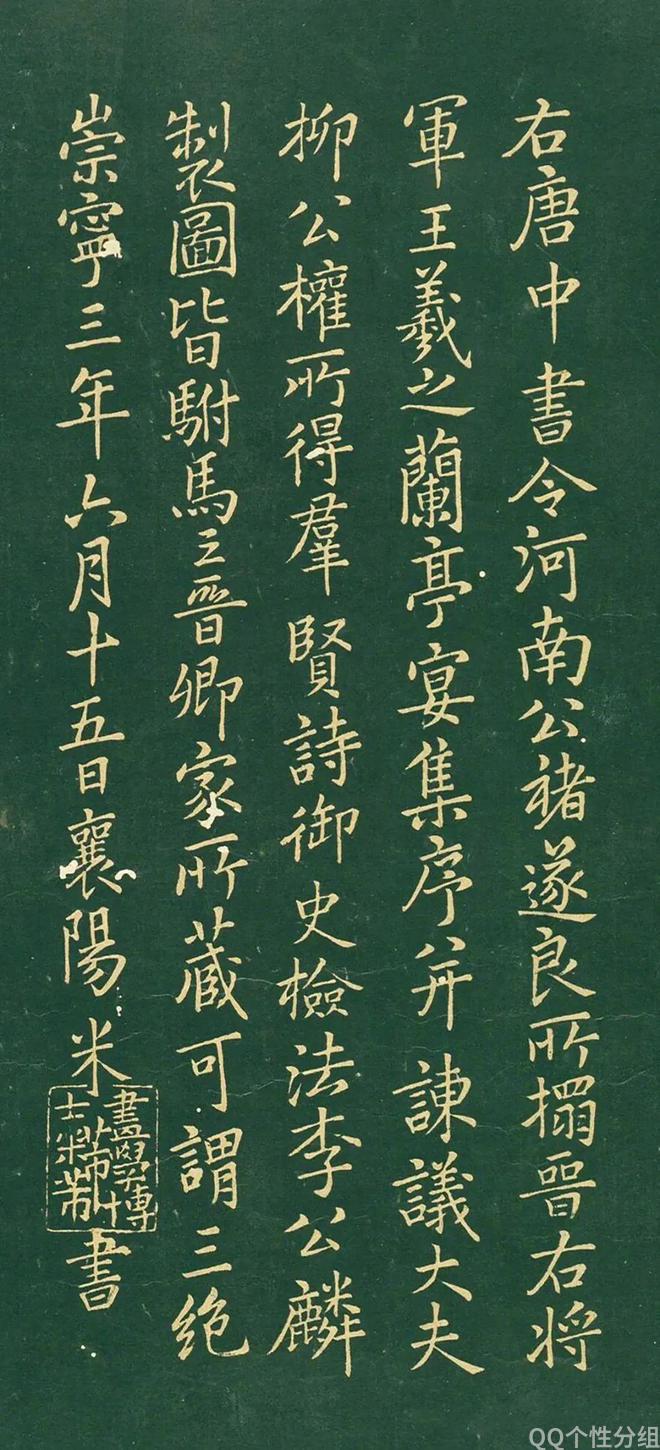 右唐中書令河南公褚遂良所搨晉右將
軍王羲之蘭亭宴集序并諫議大夫
柳公權所得羣賢詩御史檢法李公麟
製圖皆駙馬王晉卿家所蔵可謂三絶
崇寧三年六月十五日襄陽米書
QQ个性分组